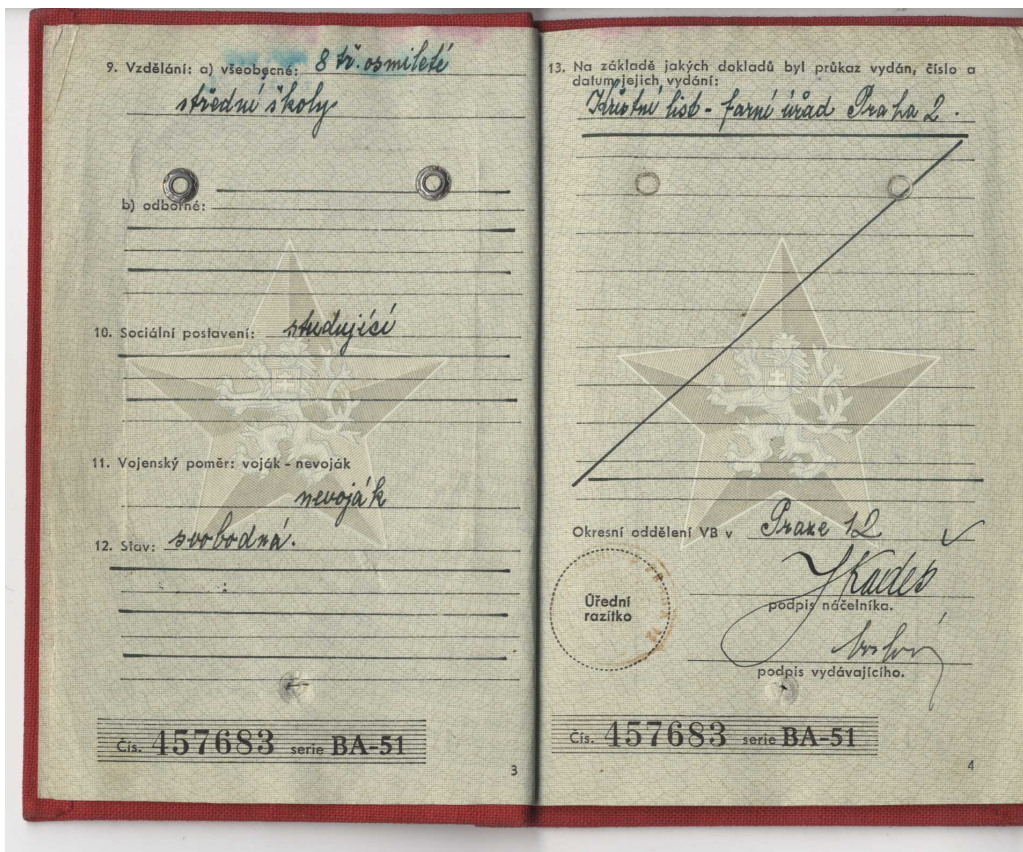 9. Vzdělání: a) všeobecné: 8 tř. osmileté
střední školy
b) odborné:
10. Sociální postavení: studující
11. Vojenský poměr: voják - nevoják
nevoják
12. Stav: svobodná.
Čís. 457683 serie BA-51
3
13. Na základě jakých dokladů byl průkaz vydán, číslo a
datum jejich vydání:
Křestní list - farní úřad Praha 2.
Okresní oddělení VB v Praze 12
Úřední
razítko
podpis náčelníka.
podpis vydávajícího.
Čís. 457683 serie BA-51
4